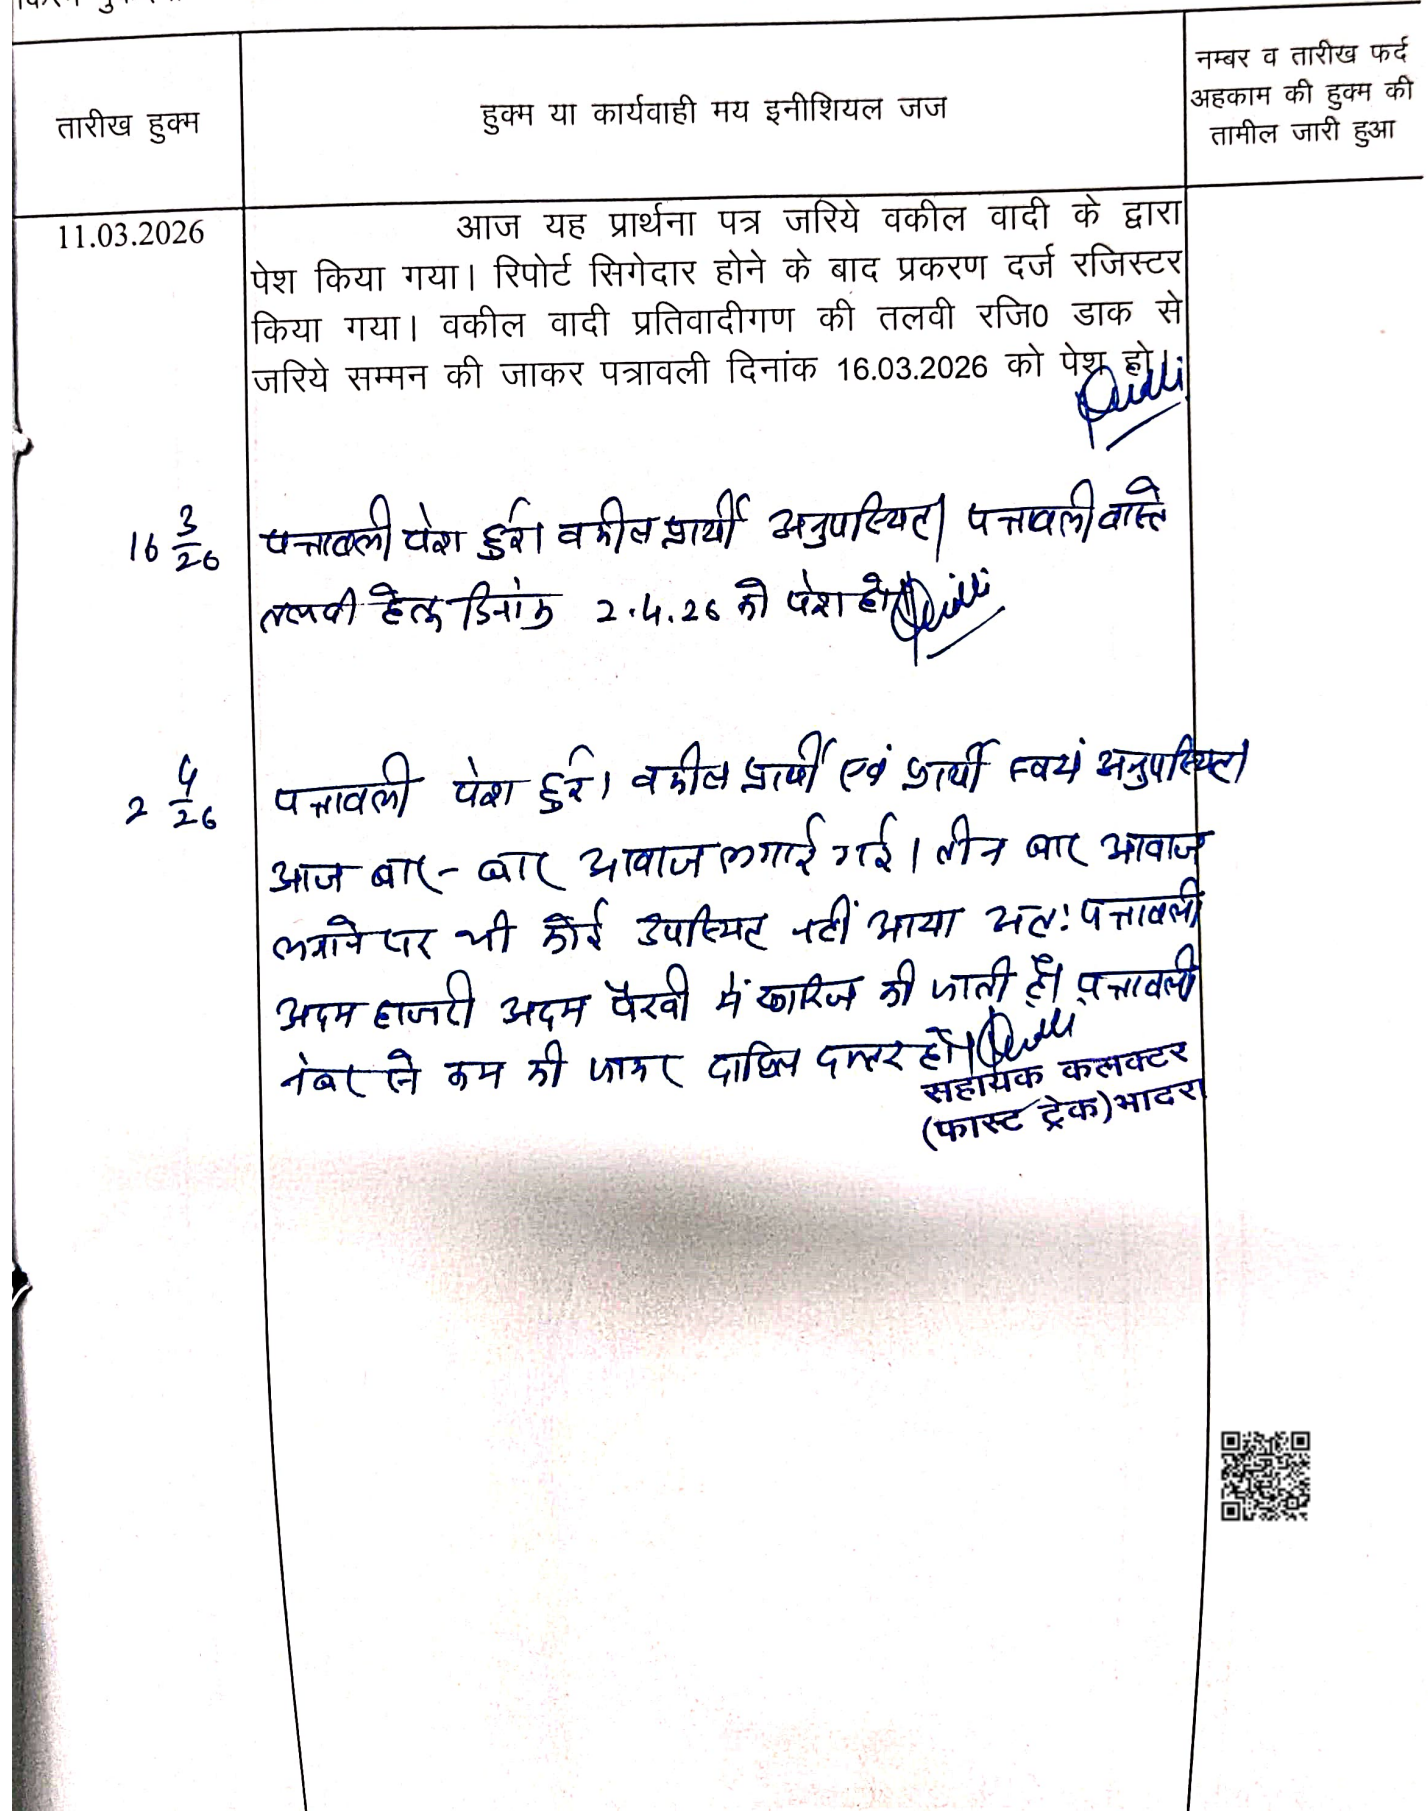 तारीख हुक्म
हुक्म या कार्यवाही मय इनीशियल जज
नम्बर व तारीख फर्द
अहकाम की हुक्म की
तामील जारी हुआ
11.03.2026
आज यह प्रार्थना पत्र जरिये वकील वादी के द्वारा
पेश किया गया। रिपोर्ट सिगेदार होने के बाद प्रकरण दर्ज रजिस्टर
किया गया। वकील वादी प्रतिवादीगण की तलवी रजि0 डाक से
जरिये सम्मन की जाकर पत्रावली दिनांक 16.03.2026 को पेश हो।
16 3/26
पत्रावली पेश हुई। वकील प्रार्थी अनुपस्थित। पत्रावली वास्ते
तलवी हेतु दिनांक 2.4.26 को पेश हो।
2 4/26
पत्रावली पेश हुई। वकील प्रार्थी एवं प्रार्थी स्वयं अनुपस्थित।
आज बार-बार आवाज लगाई गई। तीन बार आवाज
लगाने पर भी कोई उपस्थित नहीं आया अतः पत्रावली
अदम हाजरी अदम पैरवी में खारिज की जाती है। पत्रावली
नंबर से कम की जाकर दाखिल दफ्तर हो।
सहायक कलक्टर
(फास्ट ट्रेक) भादरा